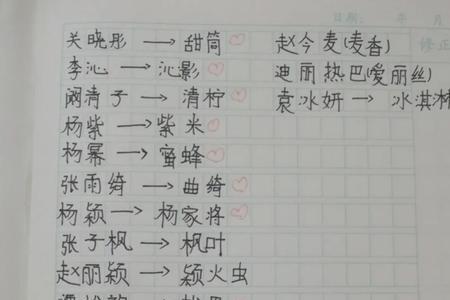 日期： 年 月
修正
关晓彤 → 甜筒♡
李沁 → 沁影♡
阚清子 → 清柠♡
杨紫 → 紫米♡
杨幂 → 蜜蜂♡
张雨绮 → 曲绮♡
杨颖 → 杨家将♡
张子枫 → 枫叶
赵丽颖 → 颖火虫
赵今麦(麦香)
迪丽热巴(爱丽丝)
袁冰妍 → 冰淇淋